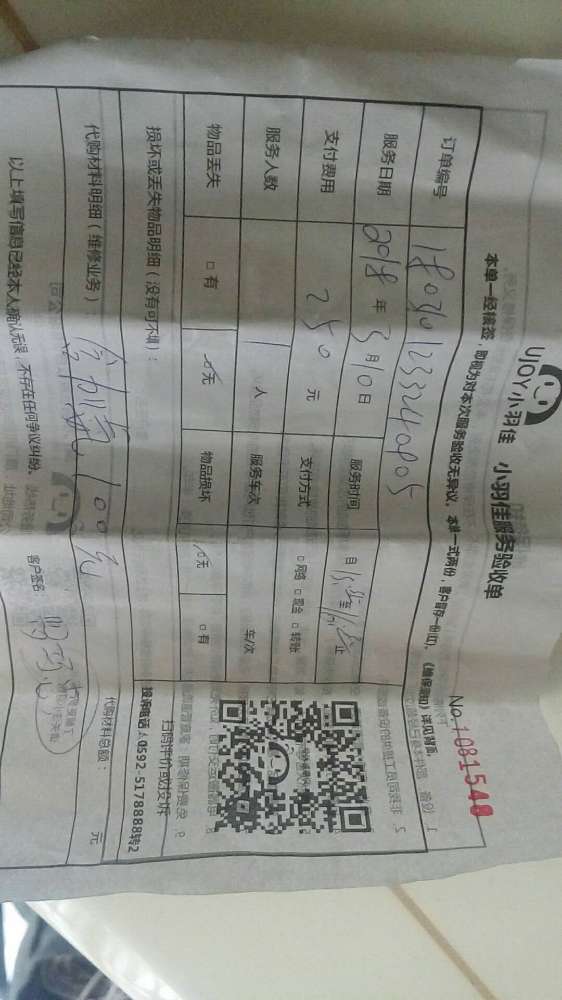 UJOY小羽佳 小羽佳服务验收单
No.1081540
本单一经核签，即视为对本次服务验收无异议。本单一式两份，客户留存一份(红)。《维保须知》详见背面。
订单编号 1803101233240905
服务日期 2018年3月10日 服务时间 自 至 止
支付费用 250元 支付方式 □网络 □现金 □转账
服务人数 1人 服务车次 车/次
物品丢失 □有 □无 物品损坏 □无 □有
扫码评价或投诉
投诉电话：0592-5178888转2
损坏或丢失物品明细（没有可不填）：
代购材料明细（维修业务）： 100元
代购材料总额： 元
以上填写信息已经本人确认无误，不存在任何争议纠纷。 客户签名：